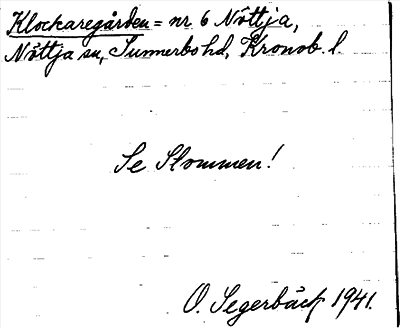 Klockaregården = nr 6 Nöttja,
Nöttja sn, Sunnerbo hd, Kronob. l.
Se Slommen!
O. Segerbäck 1941.